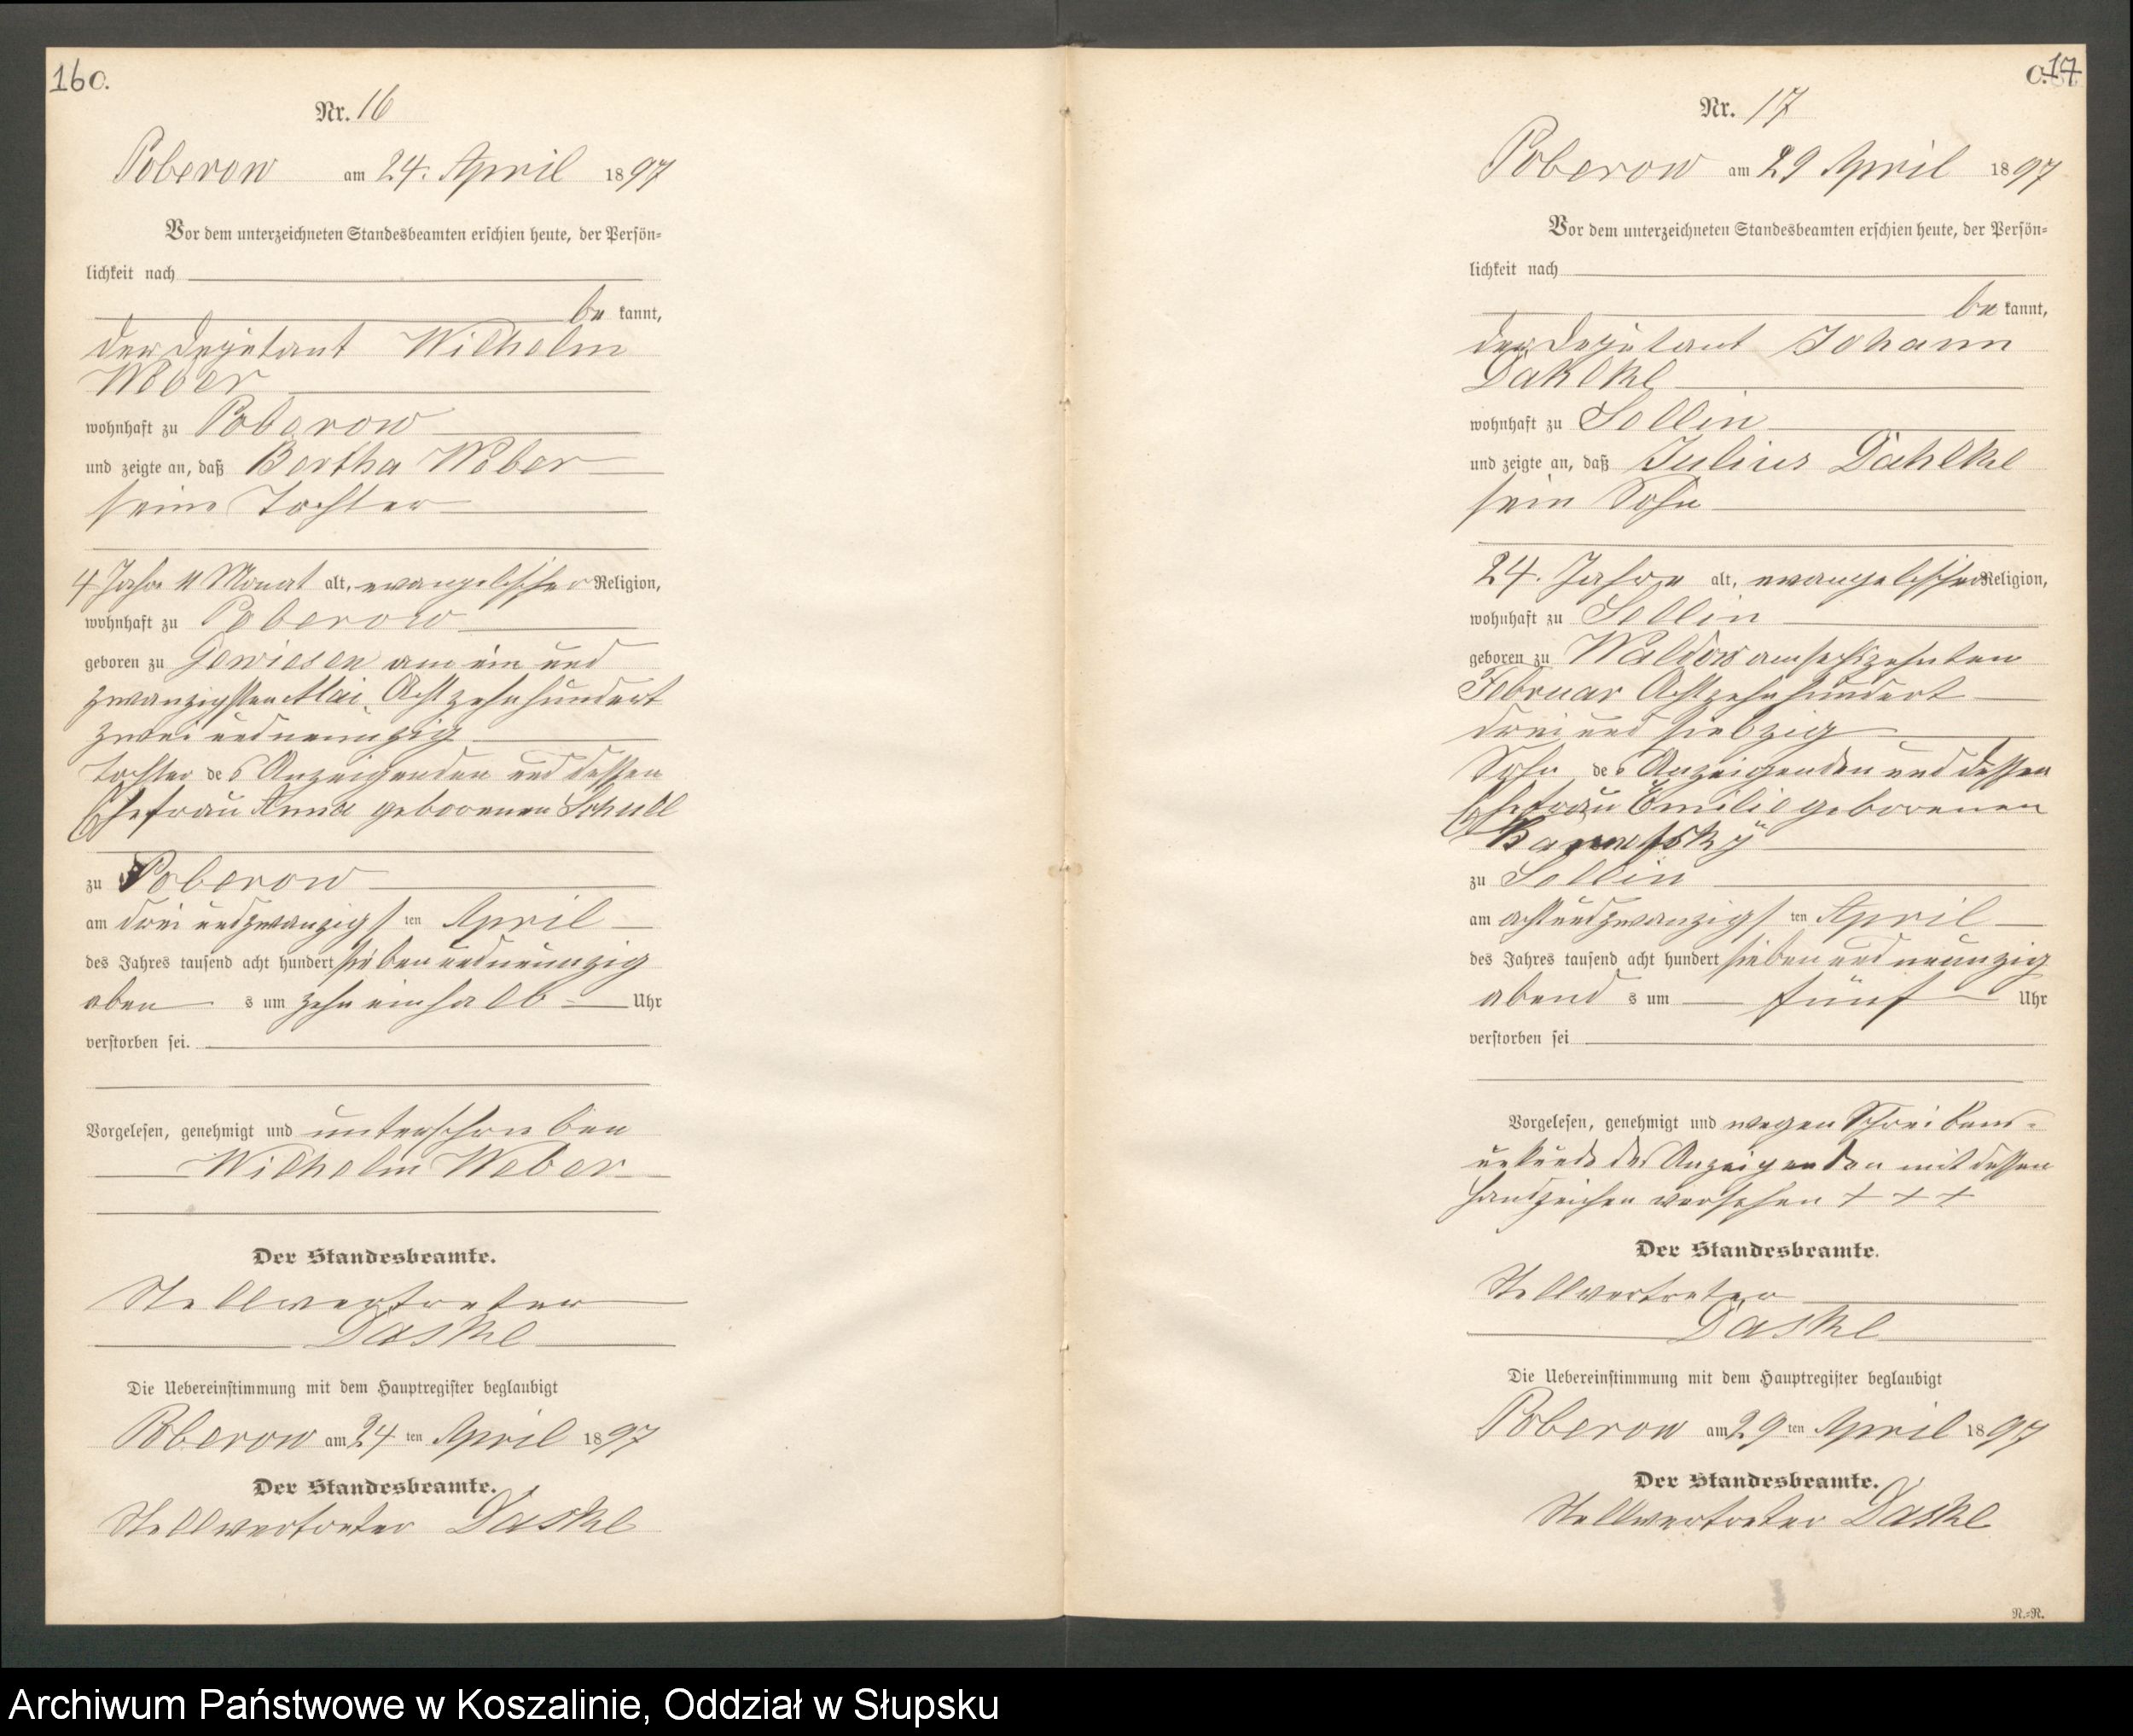 160.
Nr. 16
Poberow am 24. April 1897
Vor dem unterzeichneten Standesbeamten erschien heute, der Persön-
lichkeit nach
be kannt,
der Deputant Wilhelm
Weber
wohnhaft zu Poberow
und zeigte an, daß Bertha Weber
seine Tochter
4 Jahr 11 Monat alt, evangelischer Religion,
wohnhaft zu Poberow
geboren zu Gewiesen am ein und
zwanzigsten Mai Achtzehnhundert
zwei und neunzig
Tochter des Anzeigenden und dessen
Ehefrau Anna geborenen
zu Poberow
am drei und zwanzigsten April
des Jahres tausend acht hundert sieben und neunzig
aben s um zehn einhalb Uhr
verstorben sei.
Vorgelesen, genehmigt und unterschrieben
Wilhelm Weber
Der Standesbeamte.
Stellvertreter
Daske
Die Uebereinstimmung mit dem Hauptregister beglaubigt
Poberow am 24 ten April 1897
Der Standesbeamte.
Stellvertreter Daske
17
Nr. 17
Poberow am 29 April 1897
Vor dem unterzeichneten Standesbeamten erschien heute, der Persön-
lichkeit nach
be kannt,
der Deputant Johann
Dahlke
wohnhaft zu Sellin
und zeigte an, daß Julius Dahlke
sein Sohn
24. Jahre alt, evangelischer Religion,
wohnhaft zu Sellin
geboren zu Waldow am sechszehnten
Februar Achtzehnhundert
drei und siebzig
Sohn des Anzeigenden und dessen
Ehefrau Emilie geborenen
zu Sellin
am acht und zwanzigsten April
des Jahres tausend acht hundert sieben und neunzig
abend s um fünf Uhr
verstorben sei
Vorgelesen, genehmigt und wegen Schreibens-
unkunde des Anzeigenden mit dessen
Handzeichen versehen + + +
Der Standesbeamte.
Stellvertreter
Daske
Die Uebereinstimmung mit dem Hauptregister beglaubigt
Poberow am 29 ten April 1897
Der Standesbeamte.
Stellvertreter Daske
R.=R.
Archiwum Państwowe w Koszalinie, Oddział w Słupsku